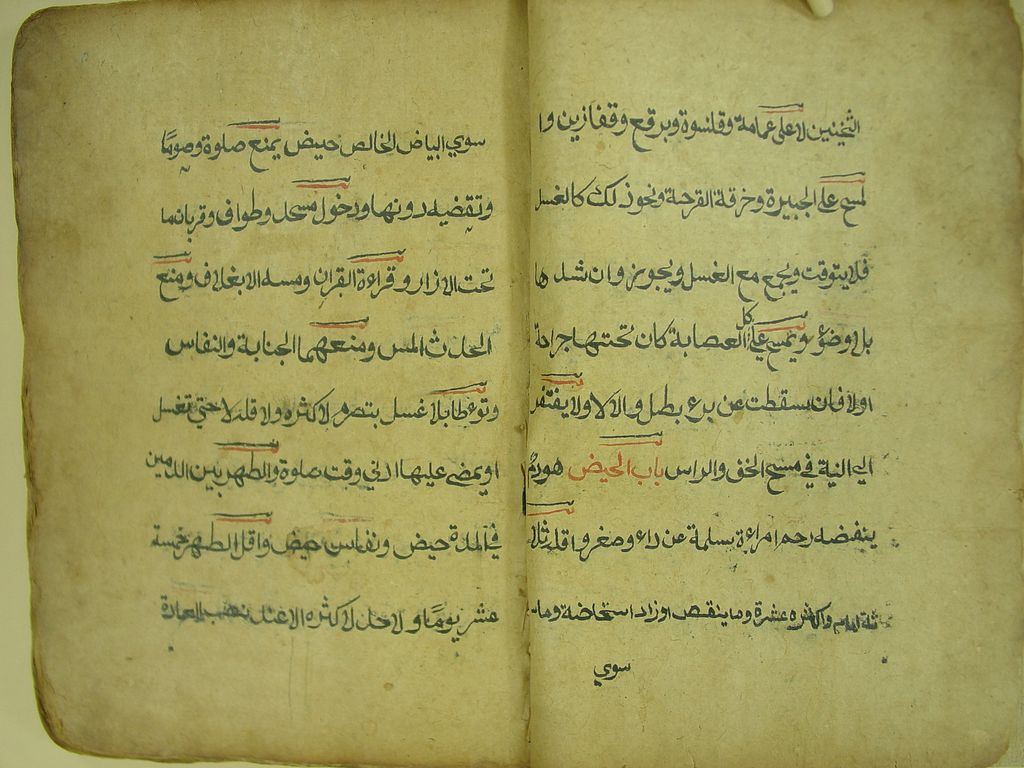 الثخينين لا على عمامة وقلنسوة وبرقع وقفازين وا
لمسح على الجبيرة وخرقة القرحة ونحو ذلك كالغسل
فلا يتوقت ويجمع مع الغسل ويجوز وان شدها
بلا وضوء ويمسح على كل العصابة كان تحتها جراحة
اولا فان سقطت عن برء بطل والا لا ولا يفتقر
الي النية في مسح الخف والراس باب الحيض هو دم
ينفضه رحم امراءة سلمة عن داء وصغر واقله ثلا
ثة ايام واكثره عشرة وما ينقص او زاد استحاضة وما
سوي
سوي البياض الخالص حيض يمنع صلوة وصوما
وتقضيه دونها ودخول مسجد وطواف وقربان ما
تحت الازار وقراءة القران ومسه الا بغلاف ومنع
الحدث المس ومنعهما الجنابة والنفاس
وتوطا بلا غسل بتصرم لاكثره ولاقله لا حتي تغسل
او يمضي عليها ادني وقت صلوة والطهر بين الدمين
في المدة حيض ونفاس حيض واقل الطهر خمسة
عشر يوما ولا حد لاكثره الا عند نصب العادة